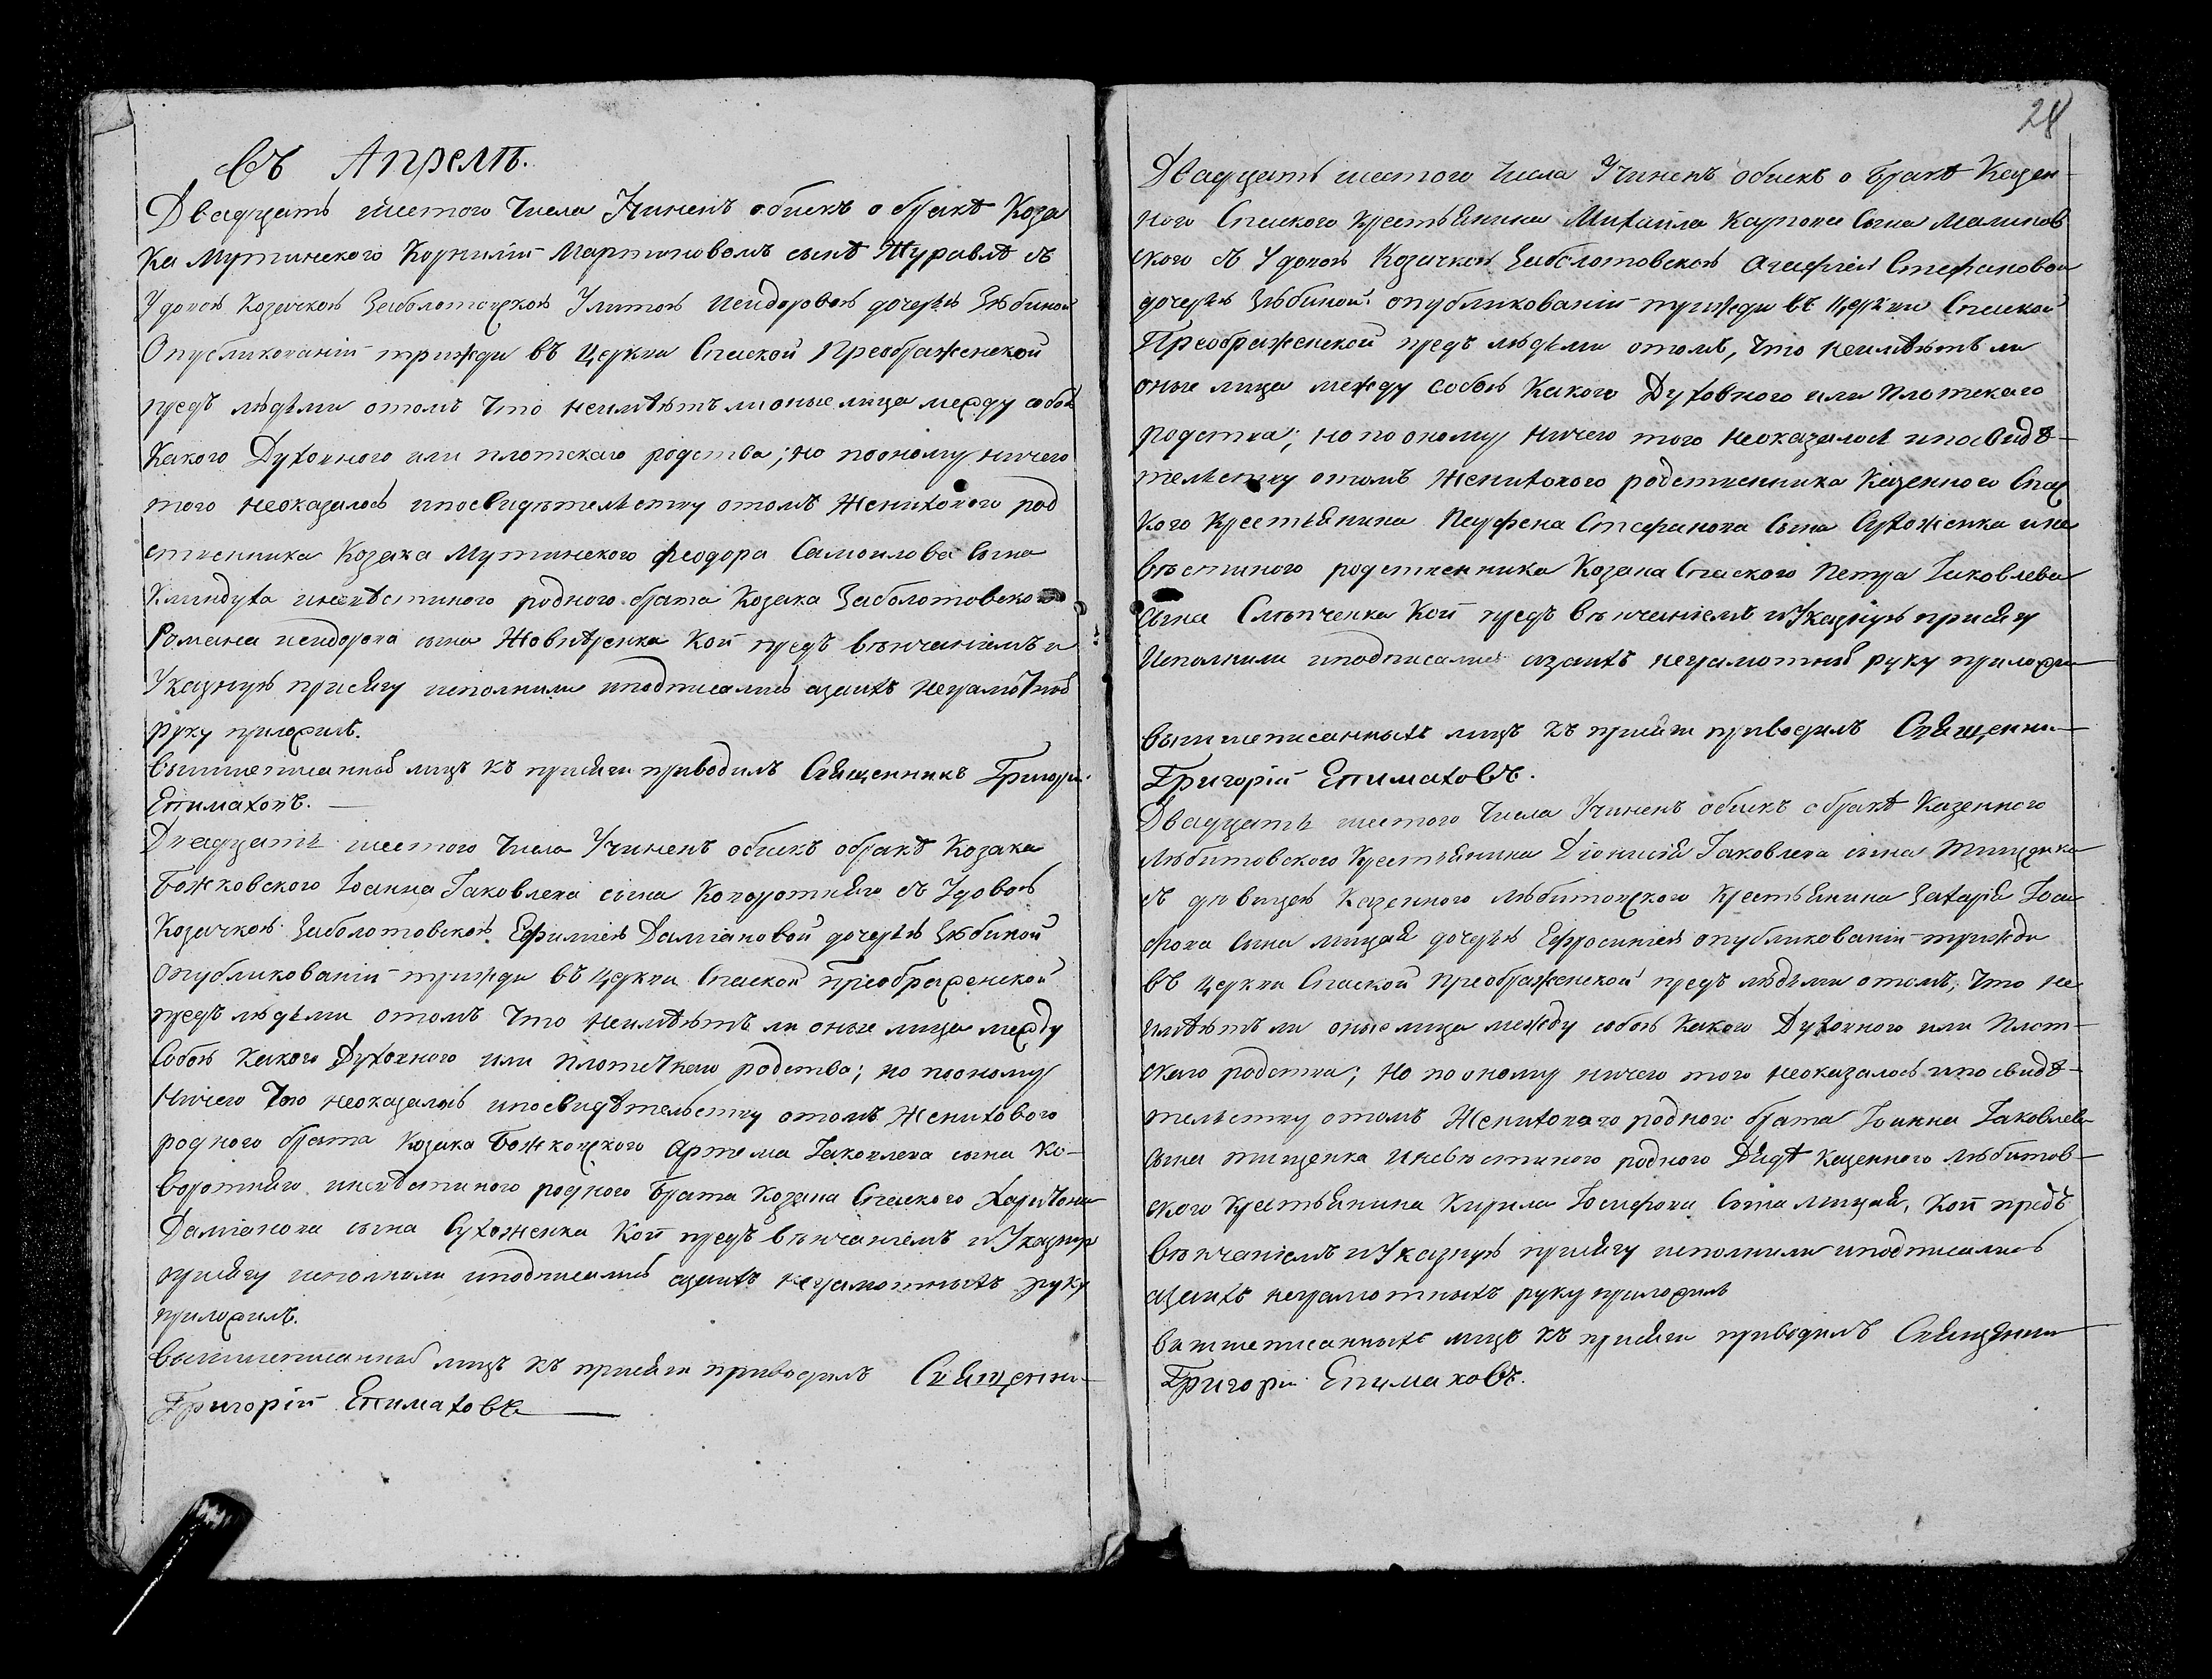 Въ Апрелѣ.
Двадцать шестого Числа Учиненъ обискъ о бракѣ Коза
ка Мутинского Корнилій Мартиновомъ сынѣ Журавлѣ съ
Удовою Козачкою Заболотовскою Улитою Исидоровою дочерью Зюбиной
Опубликованій трижди въ Церкви Спаской Преображенской
предъ людьми отомъ Что неимѣютъ лионые лица между собою
Какого Духовного или плотскаго родства; но пооному ничего
того неоказалось ипосвидѣтельству отомъ Женихового род
ственника Козака Мутинского Феодора Самоилова Сына
Клиндуха иневѣстиного родного брата Козака Заболотовского
Романа исидорова сына Жовтѣренка Кои предъ вѣнчаніемъ и
Указную присягу исполнили иподписались азаихъ неграмотныхъ
руку приложилъ.
Вышеписанныхъ лицъ къ присяги приводилъ Священникъ Григорій
Епимаховъ.
Двадцать шестого Числа Учиненъ обискъ обракѣ Козака
Божковского Іоанна Іаковлева сына Коворотняго съ Удовою
Козачкою Заболотовскою Ефиміею Даміановой дочерью Зюбиной
опубликованій трижди въ церкви Спаской преображенской
предъ людьми отомъ Что неимѣютъ ли оные лица между
Собою Какого Духовного или плотскаго родства; но пооному
Ничего того неоказалось ипосвидѣтельству отомъ Женихового
родного брата Козака Божковского Артема Іаковлева сына Ко-
воротняго иневѣстиного родного брата Козака Спаского Харитона
Даміанова сына Сухоженка Кои предъ вѣнчаніемъ и Указную
присягу исполнили иподписались азаихъ неграмотныхъ руку
приложилъ.
Вышеписанныхъ лицъ къ присяги приводилъ Священни-
Григорій Епимаховъ
24
Двадцать шестого Числа Учиненъ обискъ о бракѣ Казен-
ного Спаского Крестьянина Михаила Карпова Сына Малинов
ского съ Удовою Козачкою Заболотовскою Агафіею Стефановой
дочерью Зюбиной опубликованій трижди въ Церкви Спаской
Преображенской предъ людьми отомъ, Что неимѣютъ ли
оные лица между собою Какого Духовного или Плотскаго
родства; но по оному Ничего того неоказалось ипосвидѣ-
тельству отомъ Женихового родственника Казенного Спас
кого Крестьянина Парфена Стефанова Сына Сухоженка ине
вѣстиного родственника Козака Спаского Петра Іаковлева
Сына Слѣпченка Кои предъ вѣнчаніемъ и Указную присягу
Исполнили иподписались азаихъ неграмотныхъ руку приложи
вышшеписанныхъ лицъ къ присяги приводилъ Священни-
Григорій Епимаховъ.
Двадцать шестого Числа Учиненъ обискъ о бракѣ Казенного
Любитовского Крестьянина Діонисія Іаковлева сына Тищенка
съ дѣвицею Казенного Любитовского Крестьянина Захарія Іоси
фова Сына лицая дочерью Ефросиніею опубликованій трижди
въ церкви Спаской преображенской предъ людьми отомъ, Что не
имѣютъ ли оные лица между собою Какого Духовного или Плот-
скаго родства; Но по оному ничего того неоказалось ипосвидѣ-
тельству отомъ Жениховаго родного брата Іоанна Іаковлева
Сына тищенка иневѣстиного родного Дядѣ Казенного любитов-
ского Крестьянина Кирила Іосифова Сына лицая, Кои предъ
вѣнчаніемъ и Указную присягу исполнили иподписались
азаихъ неграмотныхъ руку приложилъ
вышшеписанныхъ лицъ къ присяги приводилъ Священни
Григорій Епимаховъ.